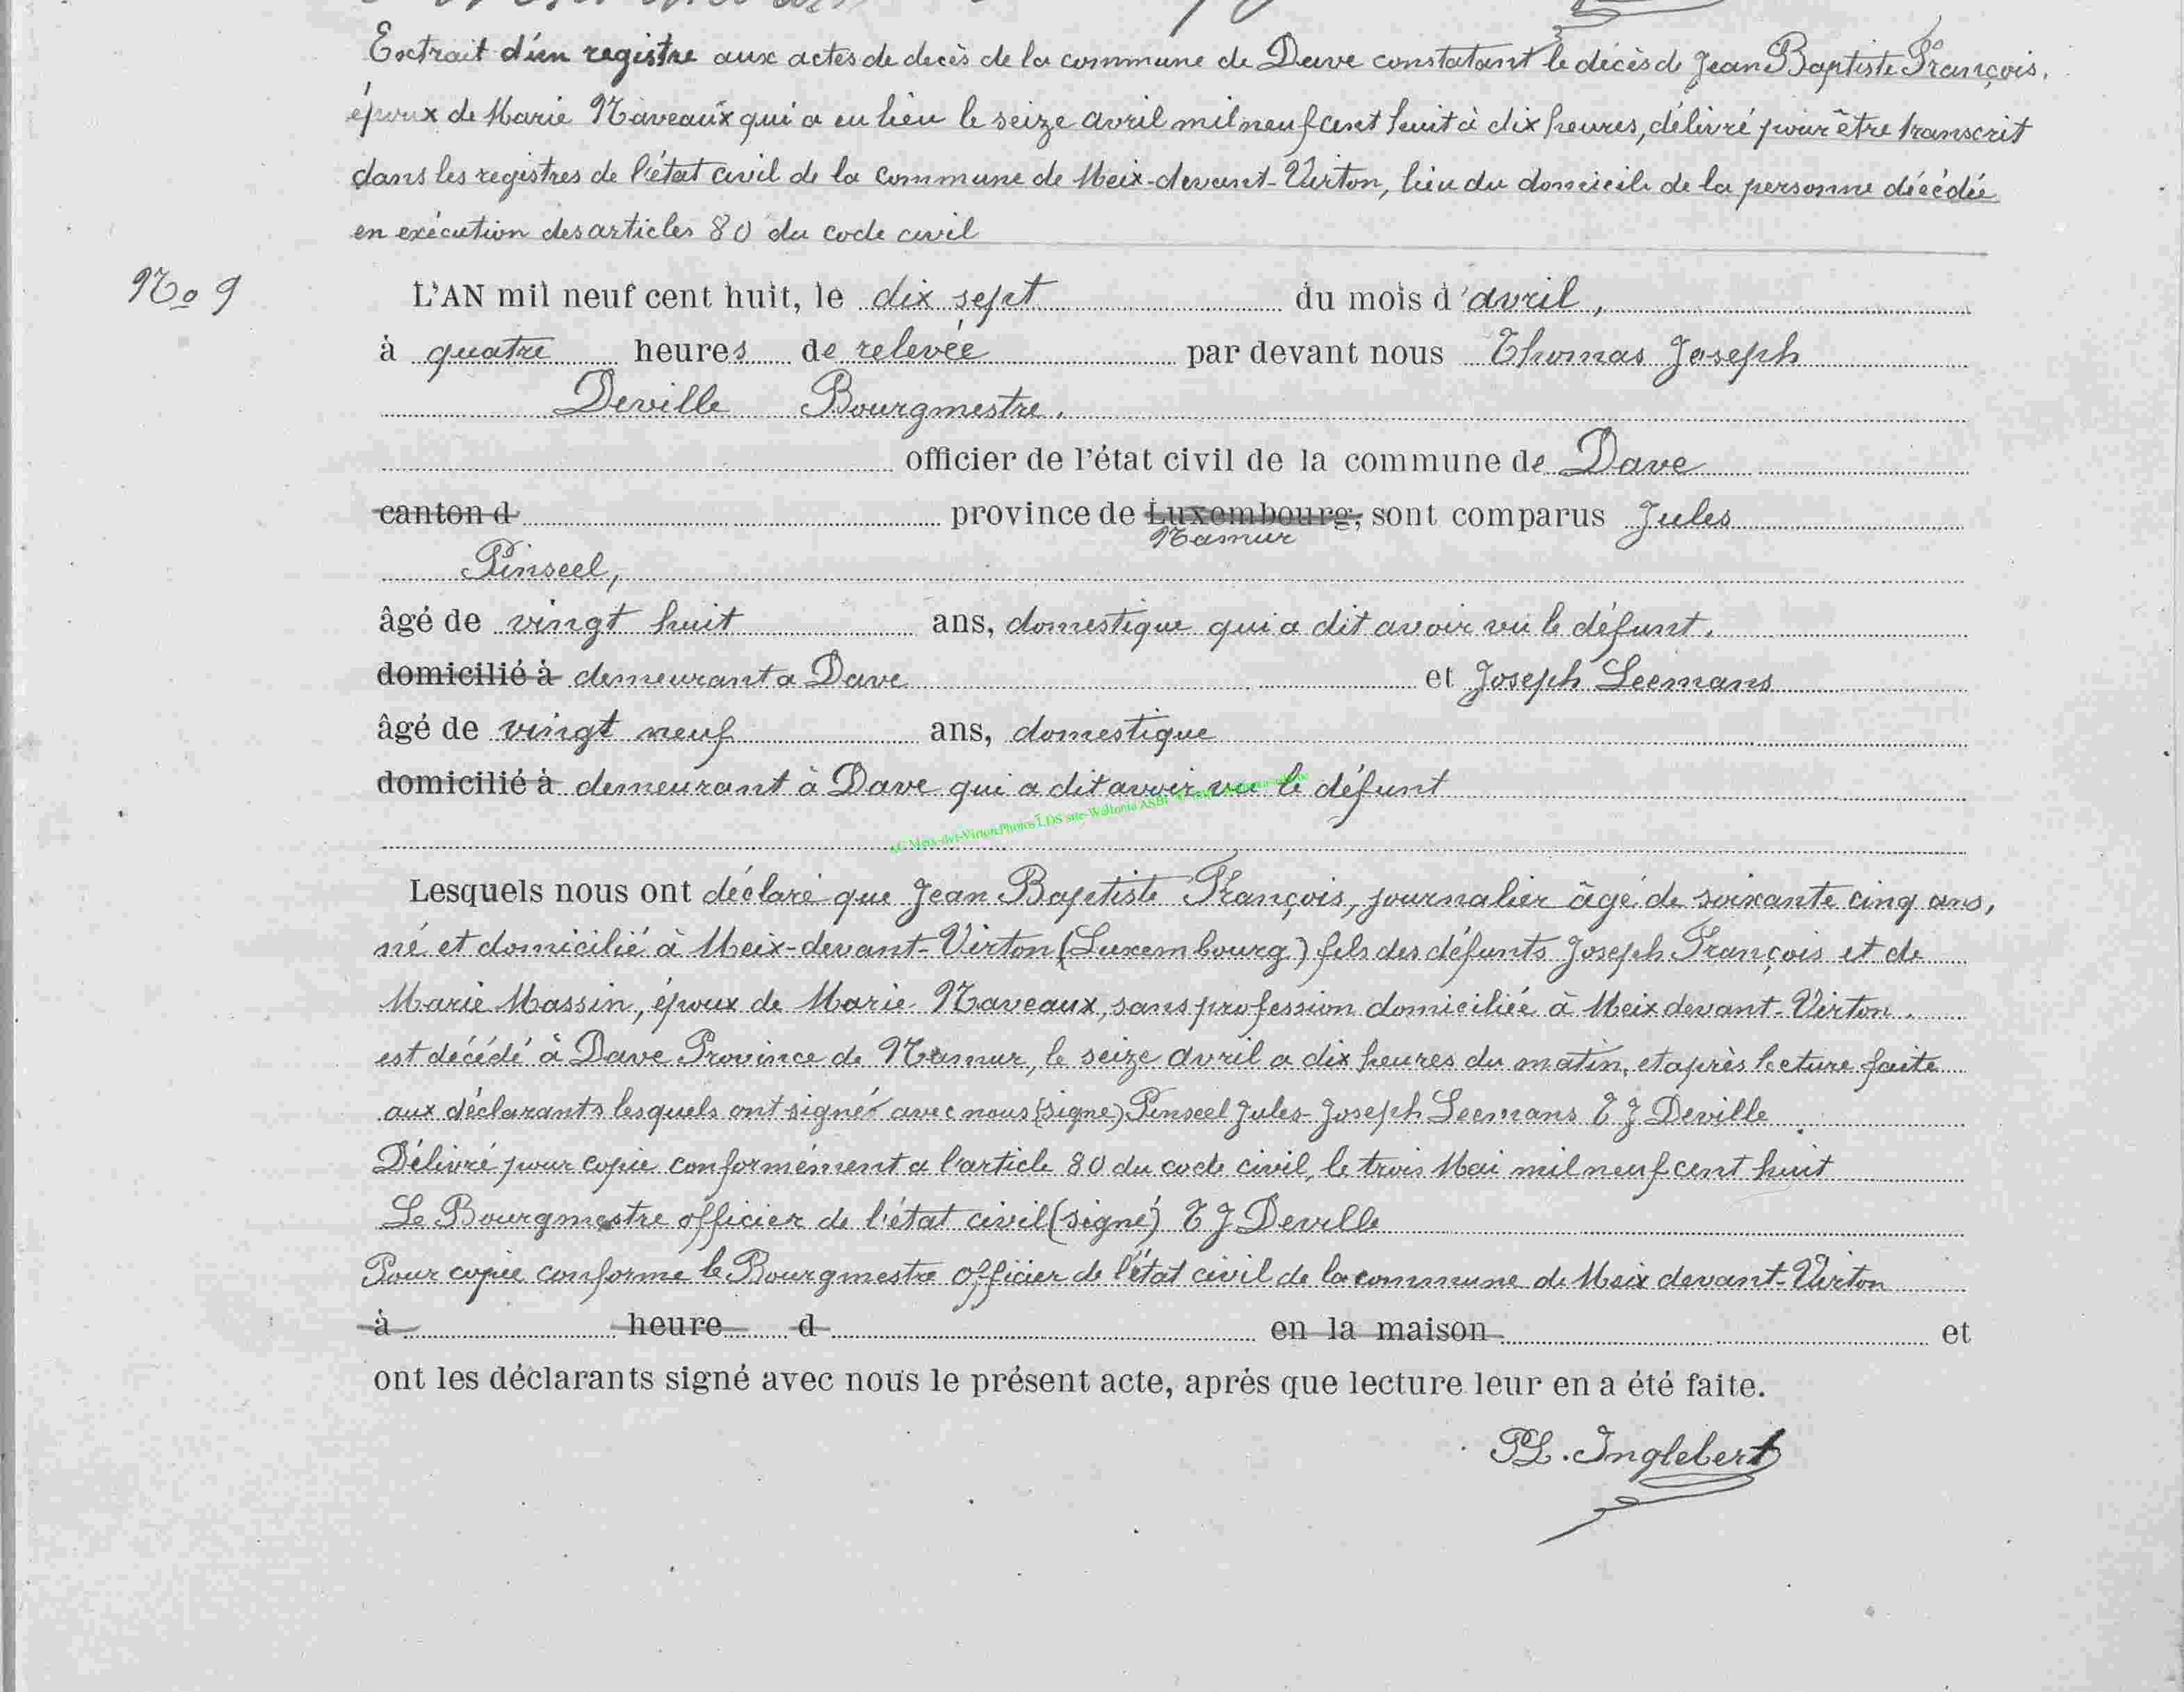 Extrait d'un registre aux actes de decès de la commune de Dave constatant le décès d Jean Baptiste François,
époux de Marie Naveaux qui a eu lieu le seize avril mil neuf cent huit à dix heures, délivré pour être transcrit
dans les registres de l'état civil de la commune de Meix-devant-Virton, lieu du domicile de la personne décédée
en exécution des articles 80 du code civil
No 9
L'AN mil neuf cent huit, le dix sept du mois d'avril,
à quatre heures de relevée par devant nous Thomas Joseph
Deville Bourgmestre.
officier de l'état civil de la commune de Dave
canton d province de Luxembourg, sont comparus Jules
Namur
Pinseel,
âgé de vingt huit ans, domestique qui a dit avoir vu le défunt.
domicilié à demeurant a Dave et Joseph Leemans
âgé de vingt neuf ans, domestique
domicilié à demeurant à Dave qui a dit avoir vu le défunt
Meix-dvt-Virton Photos LDS site-Wallonia ASBL
Lesquels nous ont déclaré que Jean Baptiste François, journalier âgé de soixante cinq ans,
né et domicilié à Meix-devant-Virton (Luxembourg) fils des défunts Joseph François et de
Marie Massin, époux de Marie Naveaux, sans profession domiciliée à Meix devant-Virton.
est décédé à Dave Province de Namur, le seize avril a dix heures du matin, et après lecture faite
aux déclarants lesquels ont signé avec nous (signe) Pinseel Jules-Joseph Leemans T J Deville
Délivré pour copie conformément a l'article 80 du code civil, le trois Mai mil neuf cent huit
Le Bourgmestre officier de l'état civil (signé) T J Deville
Pour copie conforme le Bourgmestre officier de l'état civil de la commune de Meix devant-Virton
à heure d en la maison et
ont les déclarants signé avec nous le présent acte, après que lecture leur en a été faite.
PL. Inglebert